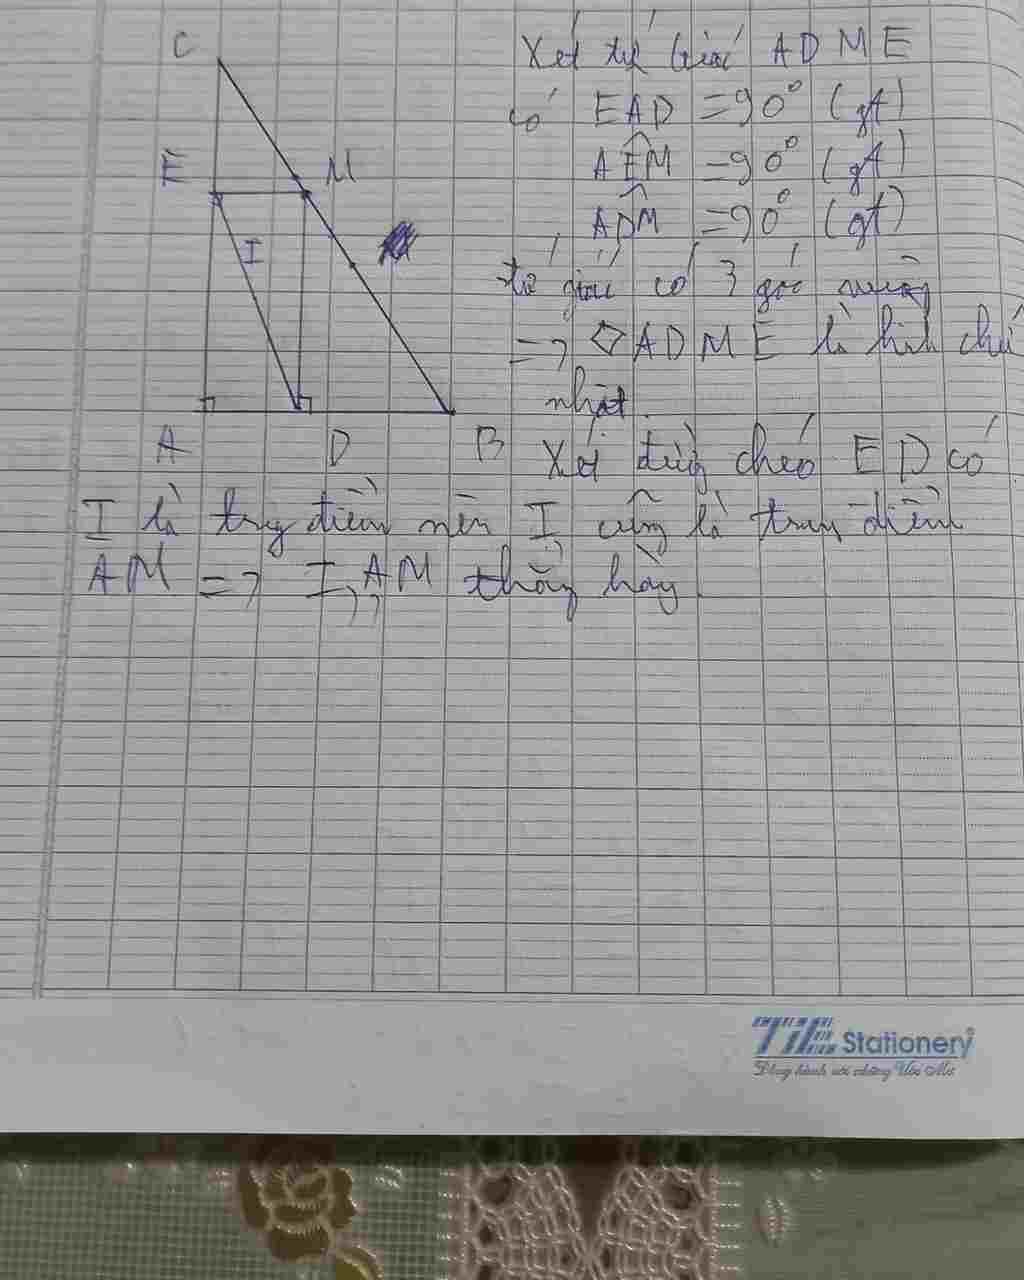 C
E
M
I
A
D
B
Xét tứ giác ADME
có EAD = 90° (gt)
AEM = 90° (gt)
ADM = 90° (gt)
tứ giác có 3 góc vuông
=> ◇ADME là hình chữ
nhật.
Xét đường chéo ED có
I là trung điểm nên I cũng là trung điểm
AM => I, AM thẳng hàng.
TiE Stationery
Đồng hành với những Ước Mơ